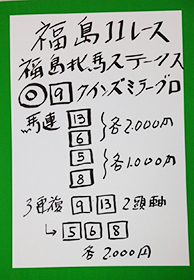 福島11レース
福島牝馬ステークス
◎ 9 クインズミラーグロ
馬連 13
6
} 各2.000円
5
8
} 各1.000円
3連複 9 13 2頭軸
↳ 5 6 8
各2.000円